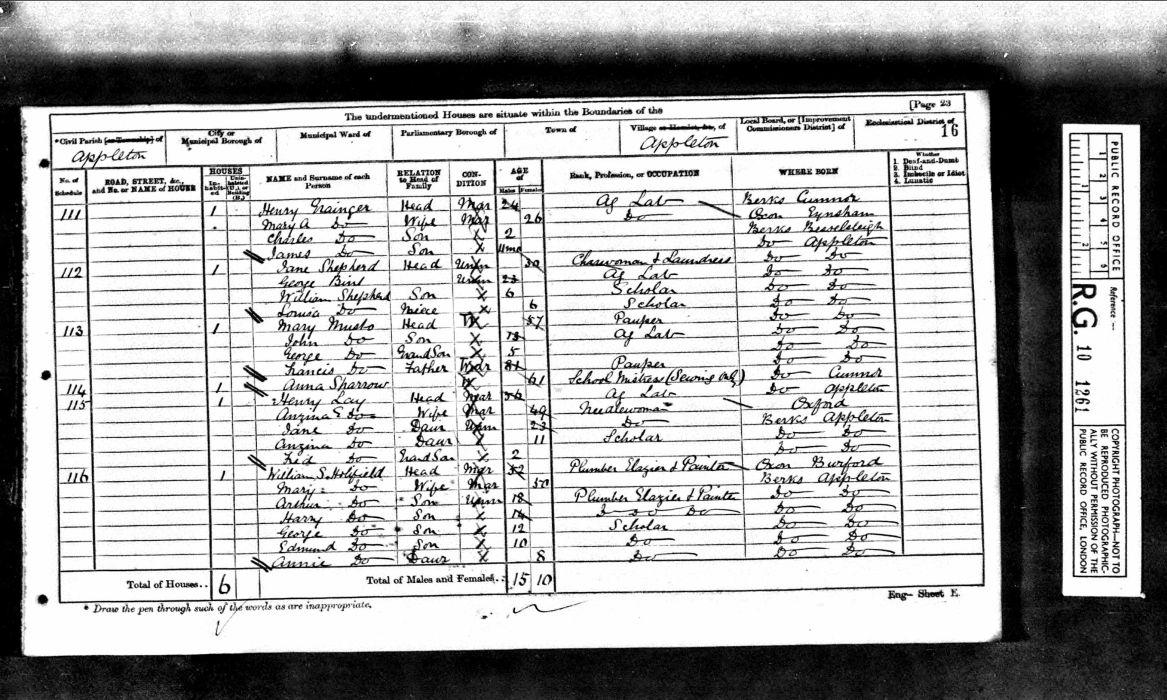 [Page 23
The undermentioned Houses are situate within the Boundaries of the
* Civil Parish [or Township] of
City or Municipal Borough of
Municipal Ward of
Parliamentary Borough of
Town of
Village or Hamlet, &c., of
Local Board, or [Improvement Commissioners District] of
Ecclesiastical District of
Appleton Appleton 16
No. of Schedule
ROAD, STREET, &c., and No. or NAME of HOUSE
HOUSES
Inhabited
Uninhabited (U.), or Building (B.)
NAME and Surname of each Person
RELATION to Head of Family
CONDITION
AGE of
Males Females
Rank, Profession, or OCCUPATION
WHERE BORN
Whether
1. Deaf-and-Dumb
2. Blind
3. Imbecile or Idiot
4. Lunatic
111 1 Henry Grainger Head Mar 24 Ag Lab Berks Cumnor
Mary A Do Wife Mar 26 Do Oxon Eynsham
Charles Do Son X 2 Berks Besselsleigh
James Do Son X 11mo Do Appleton
112 1 Jane Shepherd Head Unm 30 Charwoman & Laundress Do Do
George Unm 23 Ag Lab Do Do
William Shepherd Son X 6 Scholar Do Do
Louisa Do Niece X 6 Scholar Do Do
113 1 Mary Musto Head W 57 Pauper Do Do
John Do Son X 13 Ag Lab Do Do
George Do GrandSon X 5 Do Do
Francis Do Father Wdr 81 Pauper Do Do
114 1 Anna Sparrow W 61 School Mistress (Sewing only) Do Cumnor
115 1 Henry Lay Head Mar 56 Ag Lab Do Appleton
Anzina E Do Wife Mar 49 Needlewoman Oxford
Jane Do Daur Unm 23 Do Berks Appleton
Anzina Do Daur X 11 Scholar Do Do
Fred Do GrandSon X 2 Do Do
116 1 William S. Holifield Head Mar 52 Plumber Glazier & Painter Oxon Burford
Mary Do Wife Mar 50 Berks Appleton
Arthur Do Son Unm 18 Plumber Glazier & Painter Do Do
Harry Do Son X 14 Do Do Do Do
George Do Son X 12 Scholar Do Do
Edmund Do Son X 10 Do Do Do
Annie Do Daur X 8 Do Do Do
Total of Houses.. 6 Total of Males and Females.. 15 10
* Draw the pen through such of the words as are inappropriate.
Eng.- Sheet E.
PUBLIC RECORD OFFICE
1 2 3 4 5 6
1 2
Reference :-
R.G. 10 1261
COPYRIGHT PHOTOGRAPH-NOT TO
BE REPRODUCED PHOTOGRAPHIC-
ALLY WITHOUT PERMISSION OF THE
PUBLIC RECORD OFFICE, LONDON